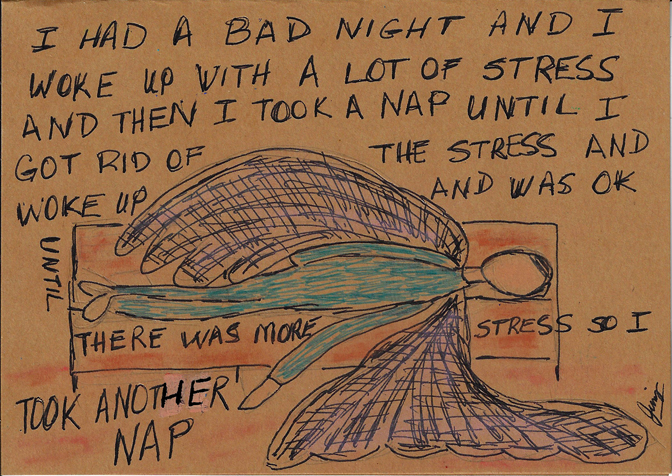 I HAD A BAD NIGHT AND I
WOKE UP WITH A LOT OF STRESS
AND THEN I TOOK A NAP UNTIL I
GOT RID OF THE STRESS AND
WOKE UP AND WAS OK
UNTIL
THERE WAS MORE STRESS SO I
TOOK ANOTHER
NAP